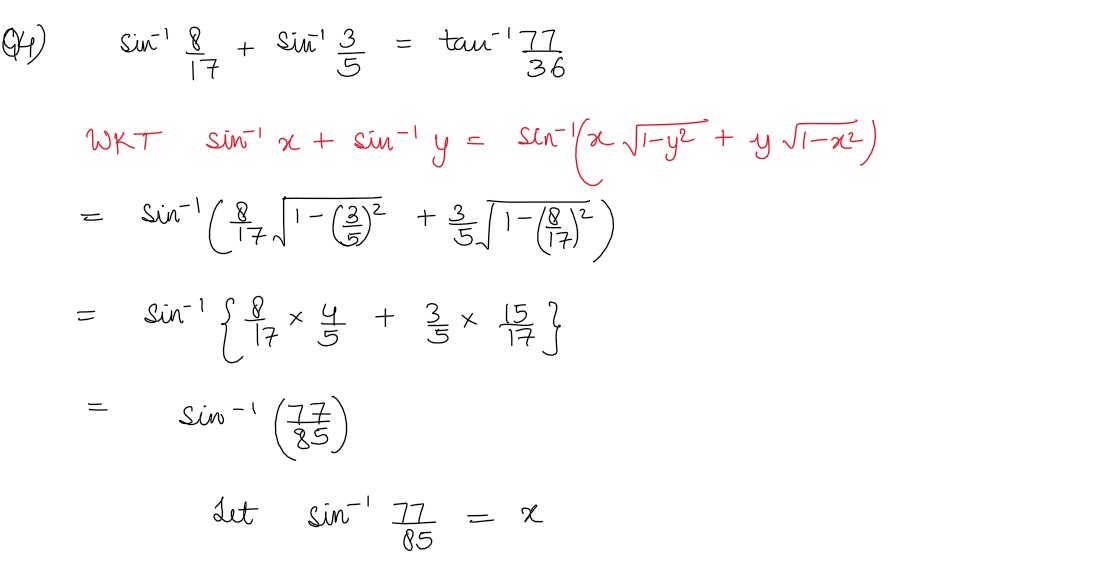 Q4) sin⁻¹ 8/17 + sin⁻¹ 3/5 = tan⁻¹ 77/36
WKT sin⁻¹ x + sin⁻¹ y = sin⁻¹(x √(1-y²) + y √(1-x²))
= sin⁻¹(8/17 √(1-(3/5)²) + 3/5 √(1-(8/17)²))
= sin⁻¹ {8/17 × 4/5 + 3/5 × 15/17}
= sin⁻¹ (77/85)
Let sin⁻¹ 77/85 = x